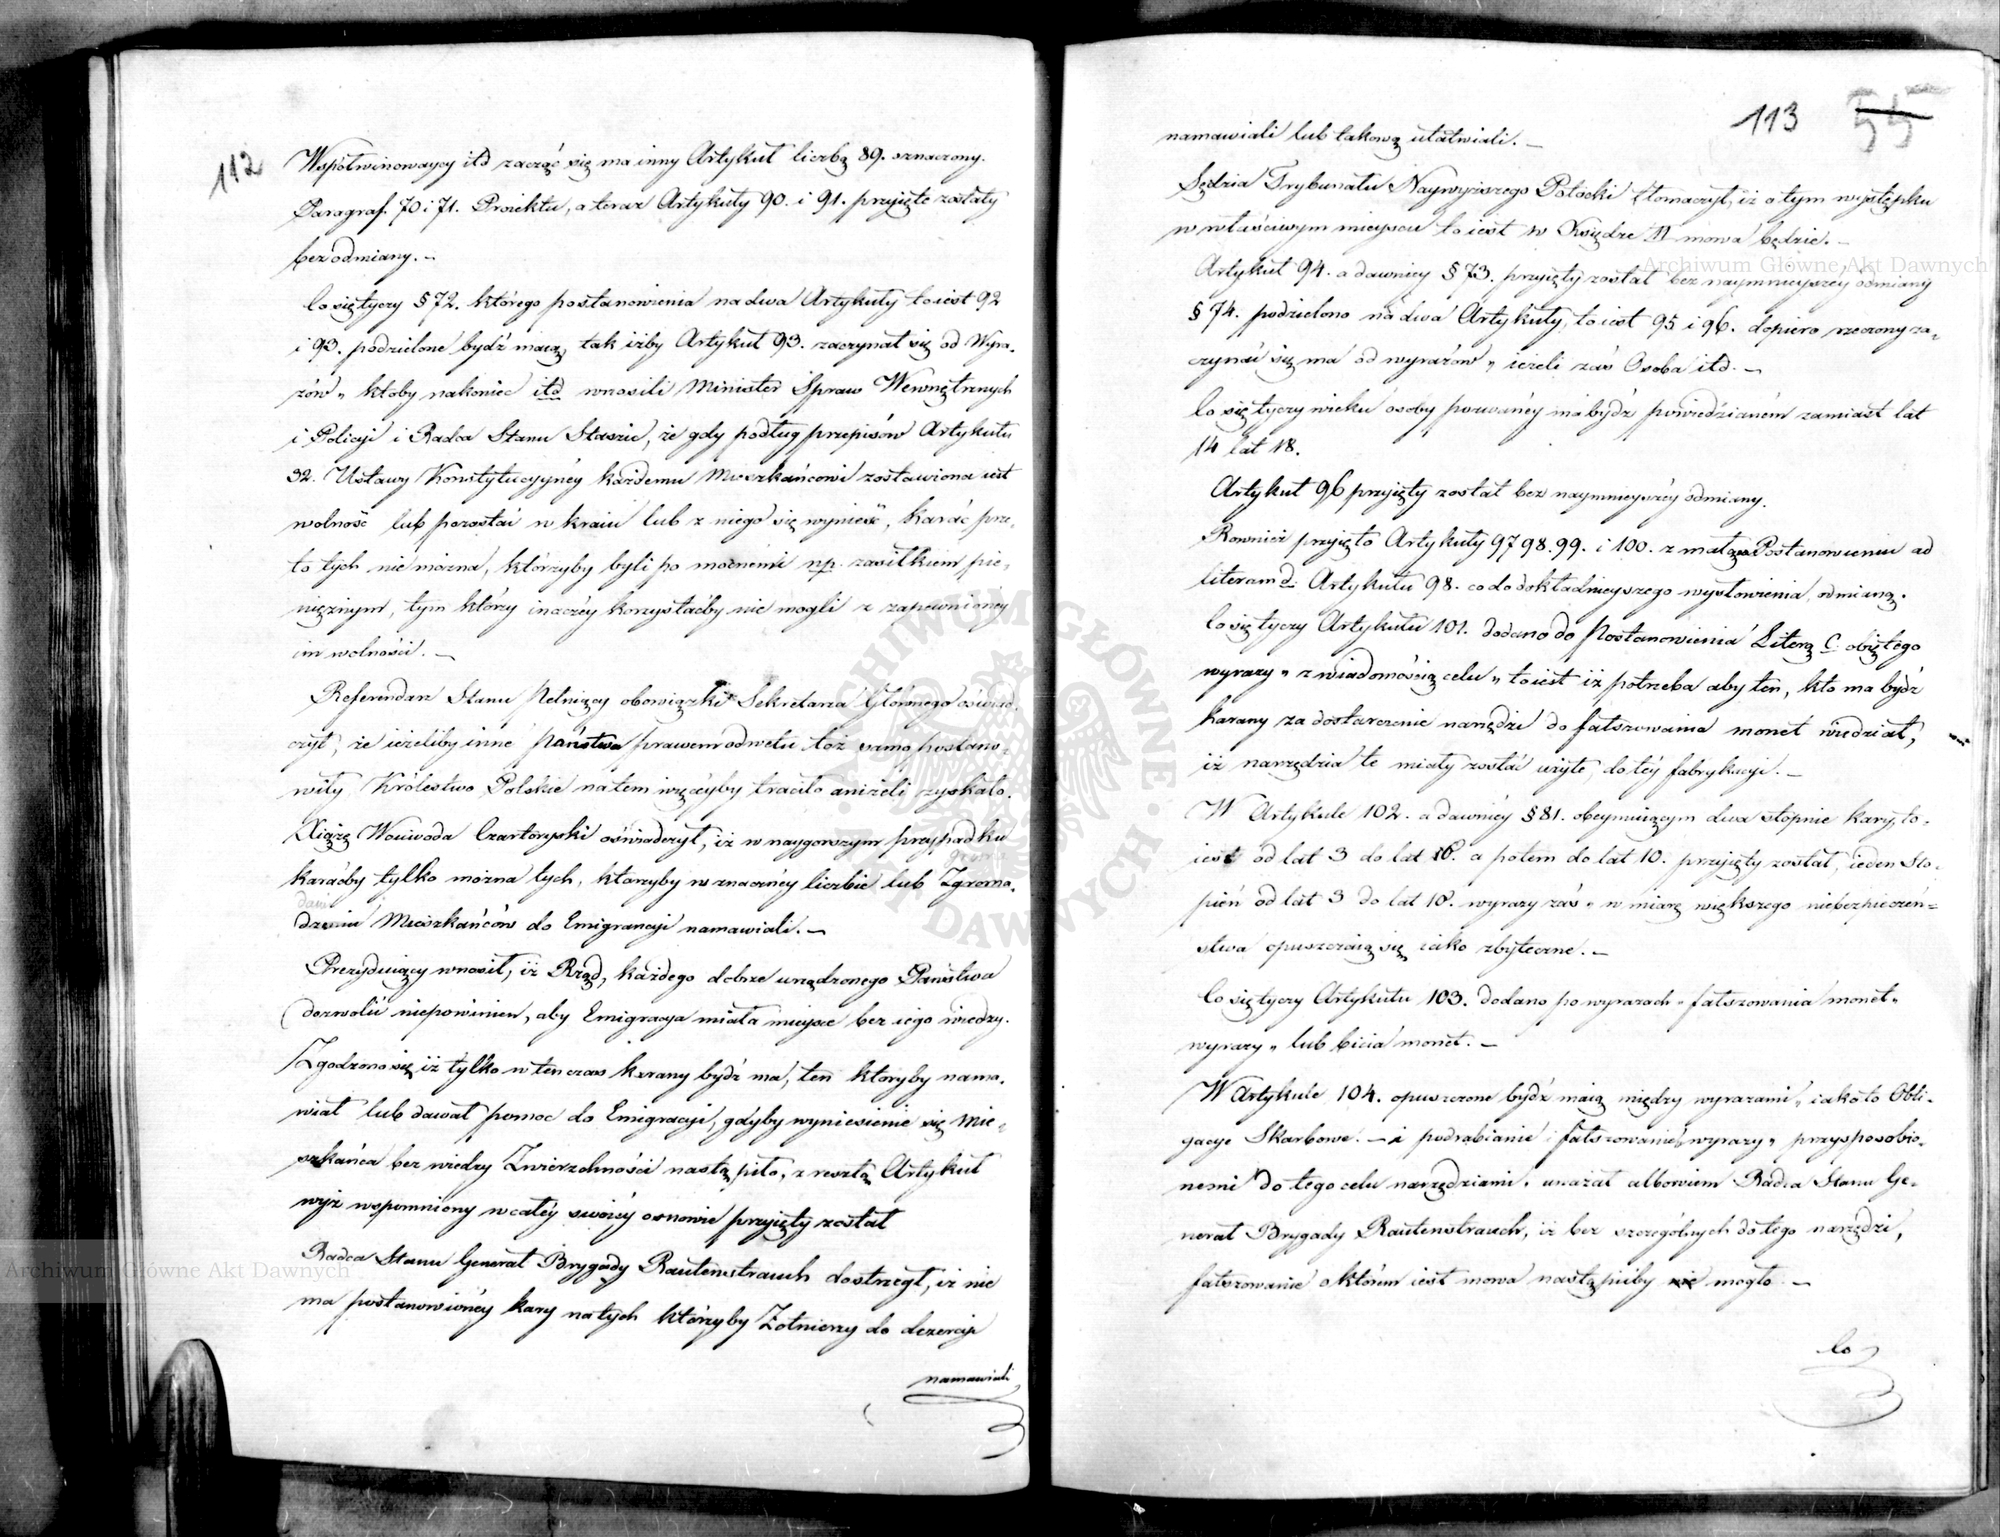 112
Wspołwinowaycy itd zacząć się ma inny Artykuł liczbą 89. oznaczony.
Paragraf. 70 i 71. Proiektu, a teraz Artykuły 90. i 91. przyięte zostały
bez odmiany. –
Co się tyczy § 72. którego postanowienia na dwa Artykuły to iest 92
i 93. podzielone bydź maią, tak iżby Artykuł 93. zaczynał się od Wyra-
zów „ ktoby nakoniec itd wnosili Minister Spraw Wewnętrznych
i Policyi i Radca Stanu Staszic, że gdy podług przepisów Artykułu
32. Ustawy Konstytucyynéy każdemu Mieszkańcowi zostawiona iest
wolność lub pozostać w kraiu lub z niego się wynieść, karać prze-
to tych nie można, którzyby byli po mocnémi np. zasiłkiem pie-
niężnym, tym którzy inaczéy korzystaćby nie mogli z zapewnioney
im wolności. –
Referendarz Stanu Pełniący obowiązki Sekretarza Głównego oświad-
czył, że ieżeliby inne Państwa prawem odwetu toż samo postano-
wiły Królestwo Polskie na tem więcéyby traciło aniżeli zyskało.
Xiążę Woiewoda Czartoryski oświadczył, iż w naygorszym przypadku
karaćby tylko można tych, którzyby w znacznéy liczbie lub Zgroma-
dzeniu Mieszkańców do Emigracyi namawiali. –
Prezyduiący wnosił, iż Rząd, każdego dobrze urządzonego Państwa
dozwolić niepowinien, aby Emigracya miała mieysce bez iego wiedzy.
Zgodzono się iż tylko w ten czas karany bydź ma, ten ktoryby nama-
wiał lub dawał pomoc do Emigracyi, gdyby wyniesienie się Mie-
szkańca bez wiedzy Zwierzchności nastąpiło, z resztą Artykuł
wyż wspomniony w całéy swoiéy osnowie przyięty został
Radca Stanu Generał Brygady Rautenstrauch dostrzegł, iż nie
ma postanowionéy kary na tych którzyby Żołnierzy do dezercyi
namawiali
113 55
namawiali lub takową ułatwiali. –
Sędzia Trybunału Naywyższego Potocki tłomaczył, iż o tym występku
w właściwym mieyscu to iest w Xsiędze II mowa będzie. –
Artykuł 94. a dawniey § 73. przyięty został bez naymnieyszéy odmiany
§ 74. podzielono na dwa Artykuły, to iest 95 i 96. dopiero rzeczony za-
czynać się ma od wyrazów „ ieżeli zaś Osoba itd. –
Co się tyczy wieku osoby porwanéy ma bydź powiedzianém zamiast lat
14 lat 18.
Artykuł 96 przyięty został bez naymnieyszéy odmiany.
Rownież przyięto Artykuły 97 98. 99. i 100. z małą w Postanowieniu ad
literam d: Artykułu 98. co do dokładnieyszego wysłowienia, odmianą.
Co się tyczy Artykułu 101. dodano do Postanowienia Literą C: obiętego
wyrazy „ z wiadomością celu „ to iest iż potrzeba aby ten, kto ma bydź
karany za dostarczenie narzędzi do fałszowania monet wiedział,
iż narzędzia te miały zostać użyte, do téy fabrykacyi. –
W Artykule 102. a dawniéy § 81. obeymuiącym dwa stopnie kary, to-
iest od lat 3 do lat 10. a potem do lat 10. przyięty został, ieden Sto-
pień od lat 3 do lat 10. wyrazy zaś „ w miarę większego niebezpieczeń=
stwa opuszczaią się iako zbyteczne. –
Co się tyczy Artykułu 103. dodano po wyrazach „ fałszowania monet „
wyrazy „ lub bicia monet. –
W Artykule 104. opuszczone bydź maią między wyrazami „ iako to Obli-
gacye Skarbowe. – i podrabianie i fałszowanie wyrazy „ przysposobio-
nemi do tego celu narzędziami. uważał albowiem Radca Stanu Ge-
nerał Brygady Rautenstrauch, iż bez szczególnych do tego narzędzi,
fałszowanie o którem iest mowa nastąpićby nie mogło. –
Co
Archiwum Główne Akt Dawnych
Archiwum Główne Akt Dawnych
ARCHIWUM GŁÓWNE AKT DAWNYCH